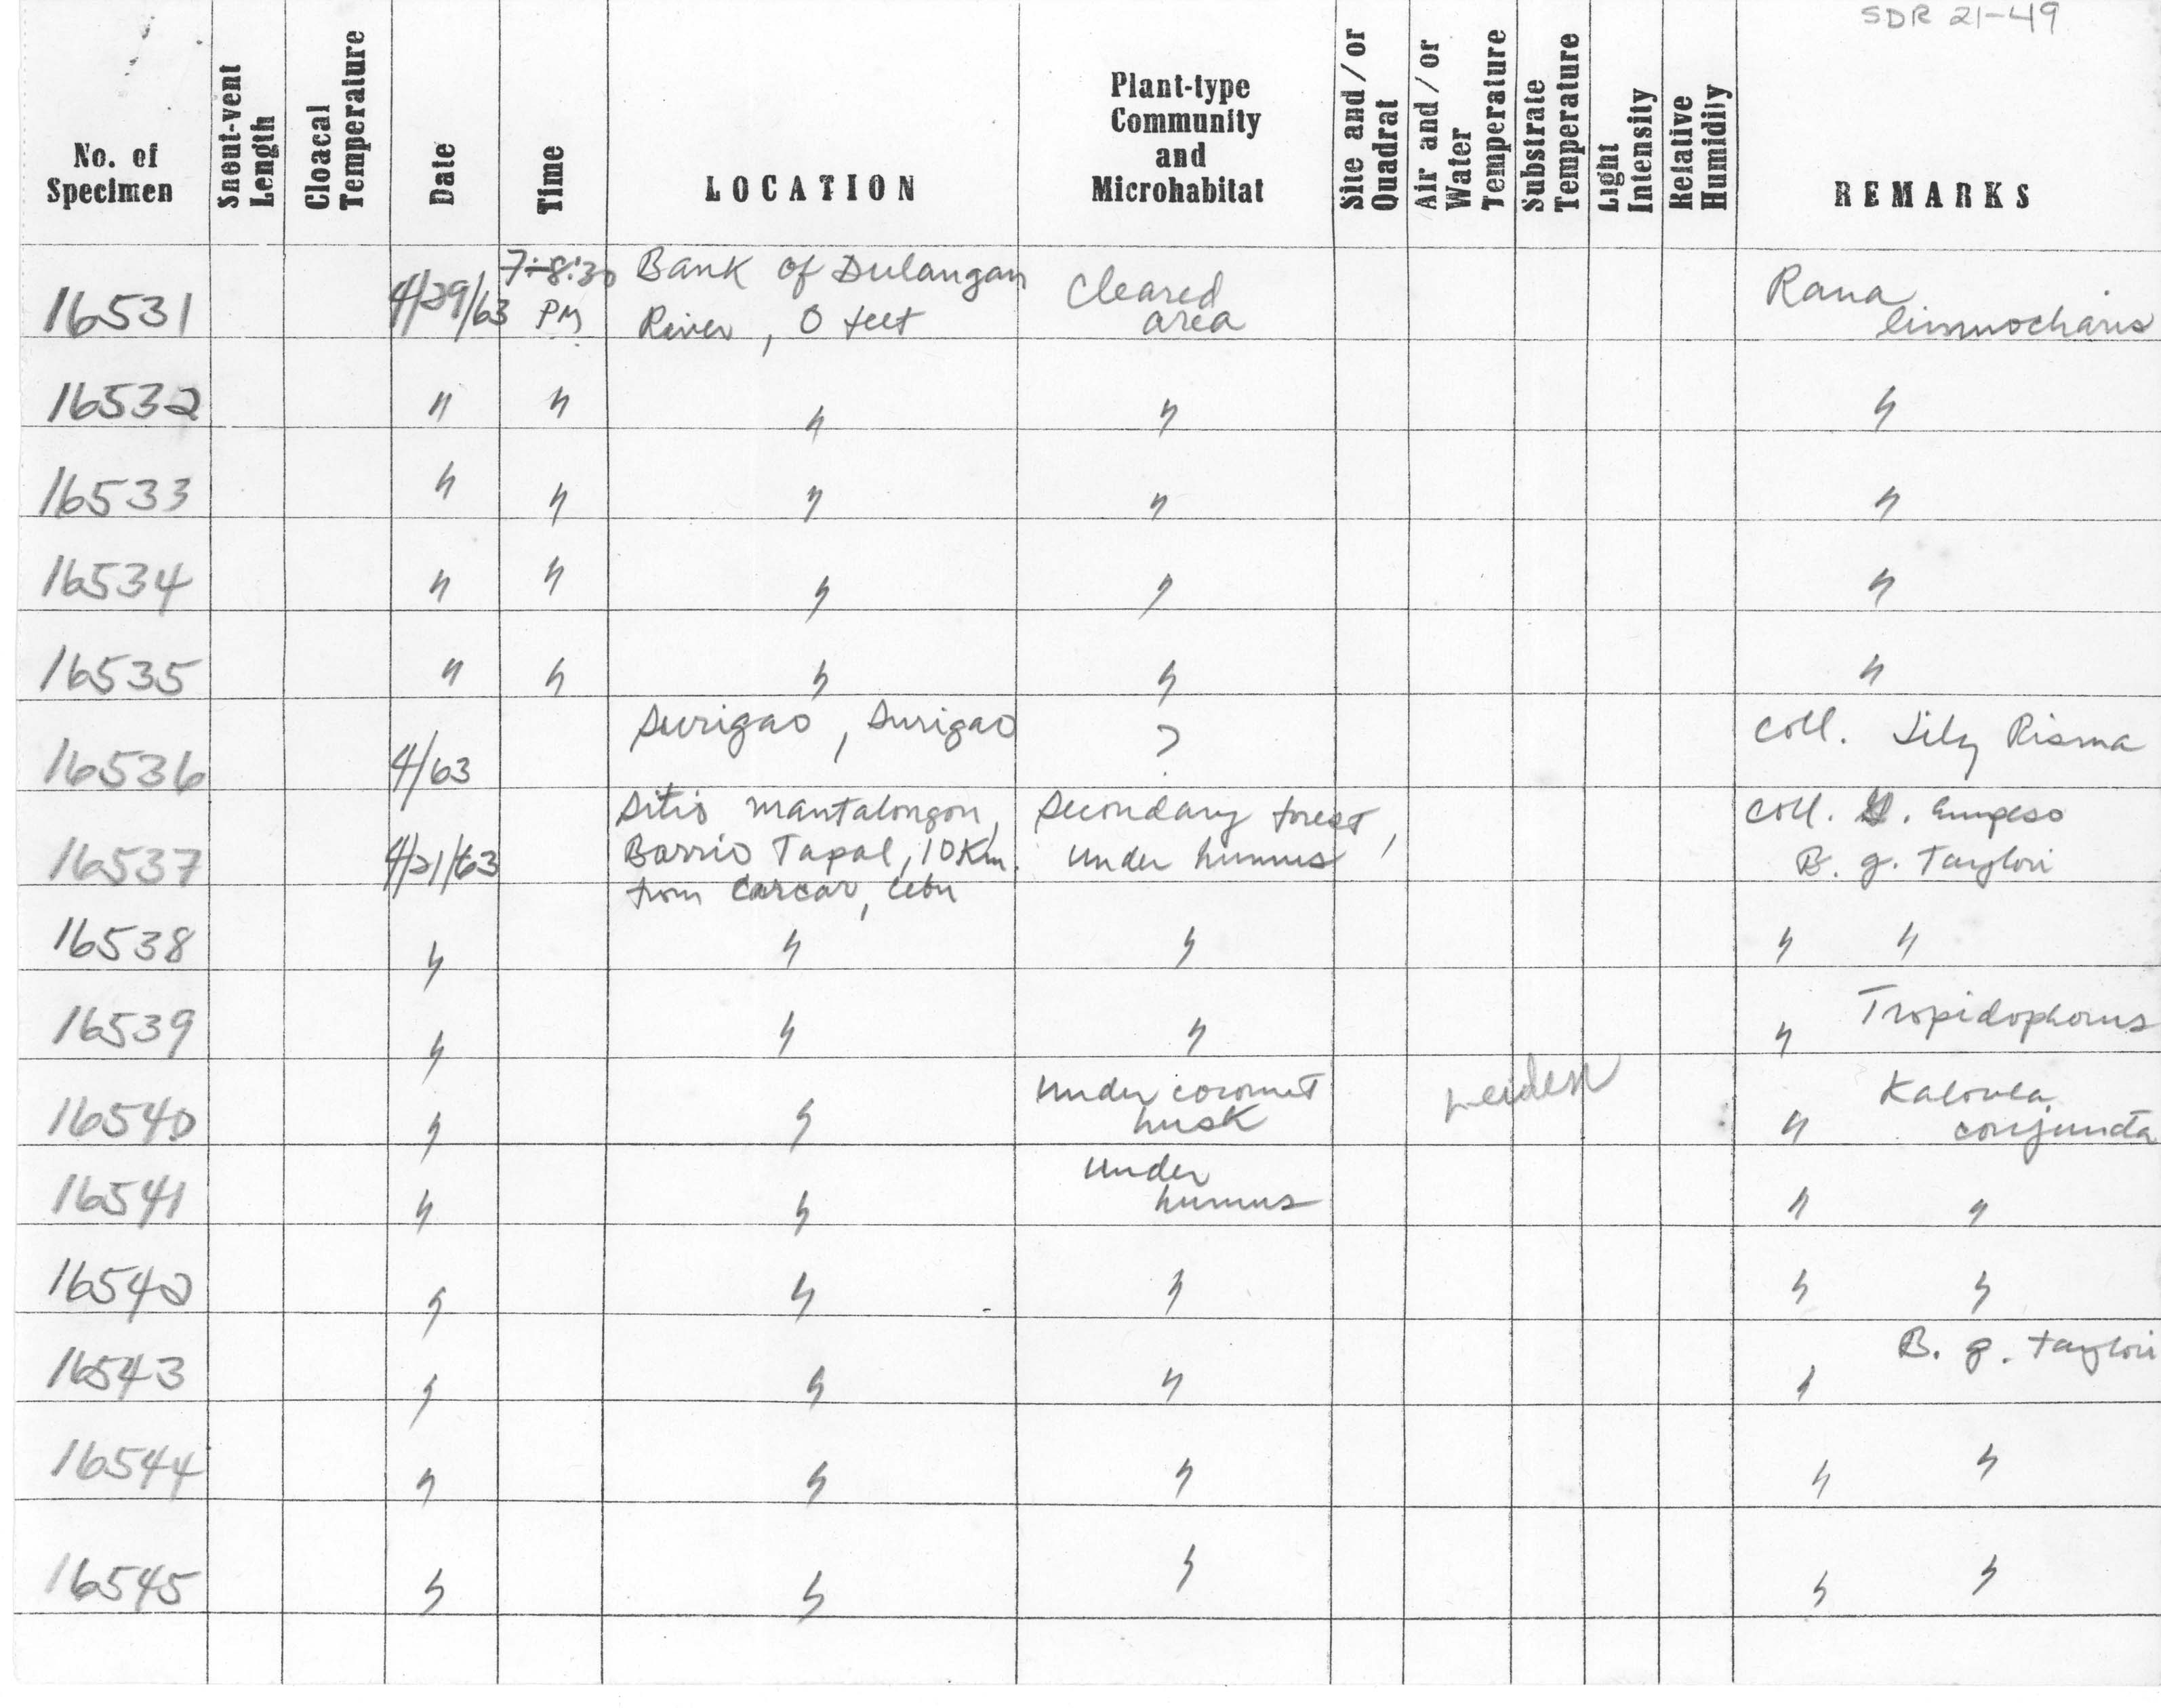 SDR 21-49
No. of Specimen Snout-vent Length Cloacal Temperature Date Time LOCATION Plant-type Community and Microhabitat Site and/or Quadrat Air and/or Water Temperature Substrate Temperature Light Intensity Relative Humidity REMARKS
16531 4/29/63 7:-8:30 PM Bank of Dulangan River, 0 feet Cleared area Rana limnocharis
16532 " " " " "
16533 " " " " "
16534 " " " " "
16535 " " " " "
16536 4/63 Surigao, Surigao ? coll. Lily Risma
16537 4/21/63 Sitio Mantalongon, Barrio Tapal, 10 Km. from Carcar, Cebu Secondary forest, under humus coll. Empeso B. g. Taylori
16538 " " " " "
16539 " " " " Tropidophorus
16540 " " Under coconut husk Leiden " Kaloula conjuncta
16541 " " Under humus " "
16542 " " " " "
16543 " " " " B. g. taylori
16544 " " " " "
16545 " " " " "